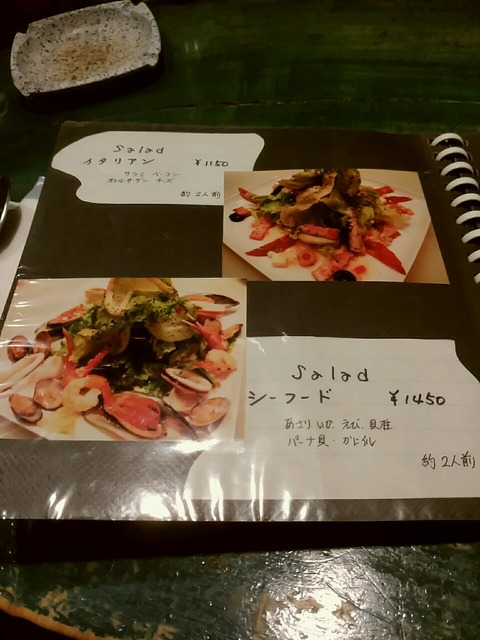 Salad
イタリアン ¥1150
サラミ ベーコン
チーズ
約2人前
Salad
シーフード ¥1450
あさり いか えび 貝柱
パーナ貝・かに爪
約2人前